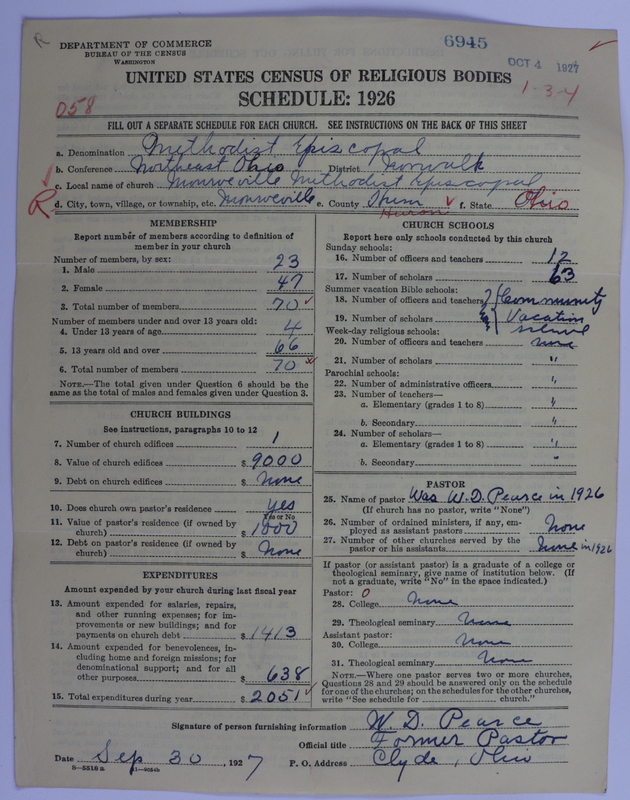 R
DEPARTMENT OF COMMERCE
BUREAU OF THE CENSUS
WASHINGTON
6945
OCT 4 1927
1-3-4
UNITED STATES CENSUS OF RELIGIOUS BODIES
SCHEDULE: 1926
D58
FILL OUT A SEPARATE SCHEDULE FOR EACH CHURCH. SEE INSTRUCTIONS ON THE BACK OF THIS SHEET
a. Denomination Methodist Episcopal
b. Conference Northeast Ohio District Norwalk
c. Local name of church Monroeville Methodist Episcopal
R d. City, town, village, or township, etc. Monroeville e. County Huron f. State Ohio
Huron
MEMBERSHIP
Report number of members according to definition of
member in your church
Number of members, by sex:
1. Male 23
2. Female 47
3. Total number of members 70
Number of members under and over 13 years old:
4. Under 13 years of age 4
5. 13 years old and over 66
6. Total number of members 70
NOTE.—The total given under Question 6 should be
same as the total of males and females given under Question 3.
CHURCH BUILDINGS
See instructions, paragraphs 10 to 12
7. Number of church edifices 1
8. Value of church edifices $ 9000
9. Debt on church edifices $ None
10. Does church own pastor's residence yes
Yes or No
11. Value of pastor's residence (if owned by
church) $ 1000
12. Debt on pastor's residence (if owned by
church) $ None
EXPENDITURES
Amount expended by your church during last fiscal year
13. Amount expended for salaries, repairs,
and other running expenses; for im-
provements or new buildings; and for
payments on church debt $ 1413
14. Amount expended for benevolences, in-
cluding home and foreign missions; for
denominational support; and for all
other purposes $ 638
15. Total expenditures during year $ 2051
CHURCH SCHOOLS
Report here only schools conducted by this church
Sunday schools:
16. Number of officers and teachers 12
17. Number of scholars 63
Summer vacation Bible schools:
18. Number of officers and teachers Community
19. Number of scholars Vacation
school
Week-day religious schools:
20. Number of officers and teachers none
21. Number of scholars "
Parochial schools:
22. Number of administrative officers "
23. Number of teachers—
a. Elementary (grades 1 to 8) "
b. Secondary "
24. Number of scholars—
a. Elementary (grades 1 to 8) "
b. Secondary "
PASTOR
25. Name of pastor Was W. D. Pearce in 1926
(If church has no pastor, write "None")
26. Number of ordained ministers, if any, em-
ployed as assistant pastors None
27. Number of other churches served by the
pastor or his assistants None in 1926
If pastor (or assistant pastor) is a graduate of a college or
theological seminary, give name of institution below. (If
not a graduate, write "No" in the space indicated.)
Pastor: 0
28. College None
29. Theological seminary None
Assistant pastor:
30. College None
31. Theological seminary None
NOTE.—Where one pastor serves two or more churches,
Questions 28 and 29 should be answered only on the schedule
for one of the churches; on the schedules for the other churches,
write "See schedule for church."
Signature of person furnishing information W. D. Pearce
Official title Former Pastor
Date Sep 30, 1927 P. O. Address Clyde, Ohio
8—5518 a 11—9054b